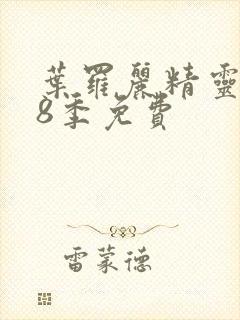 葉羅麗精靈
8季免費
雷蒙德